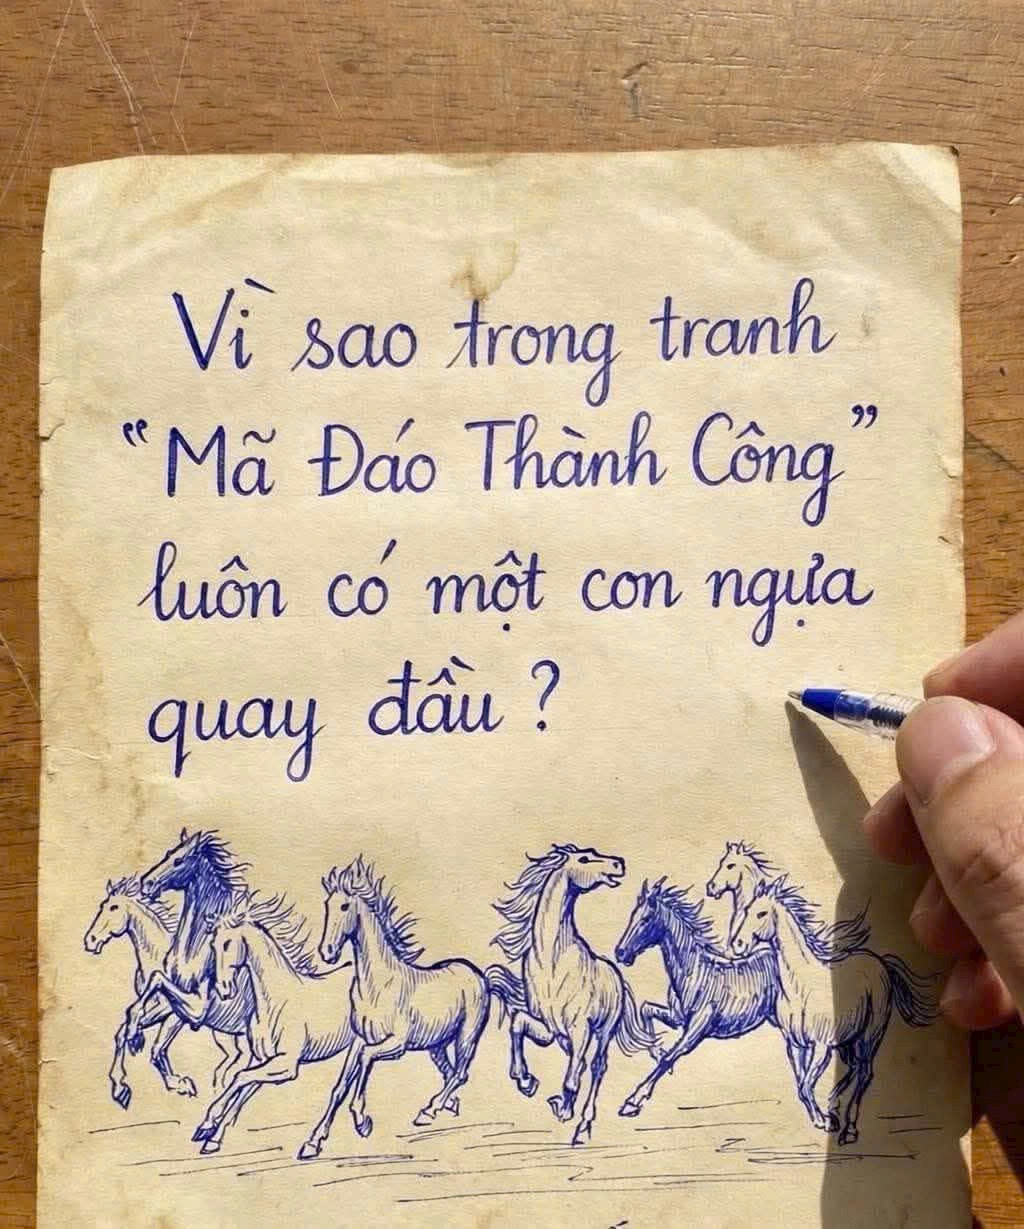 Vì sao trong tranh
“Mã Đáo Thành Công”
luôn có một con ngựa
quay đầu?